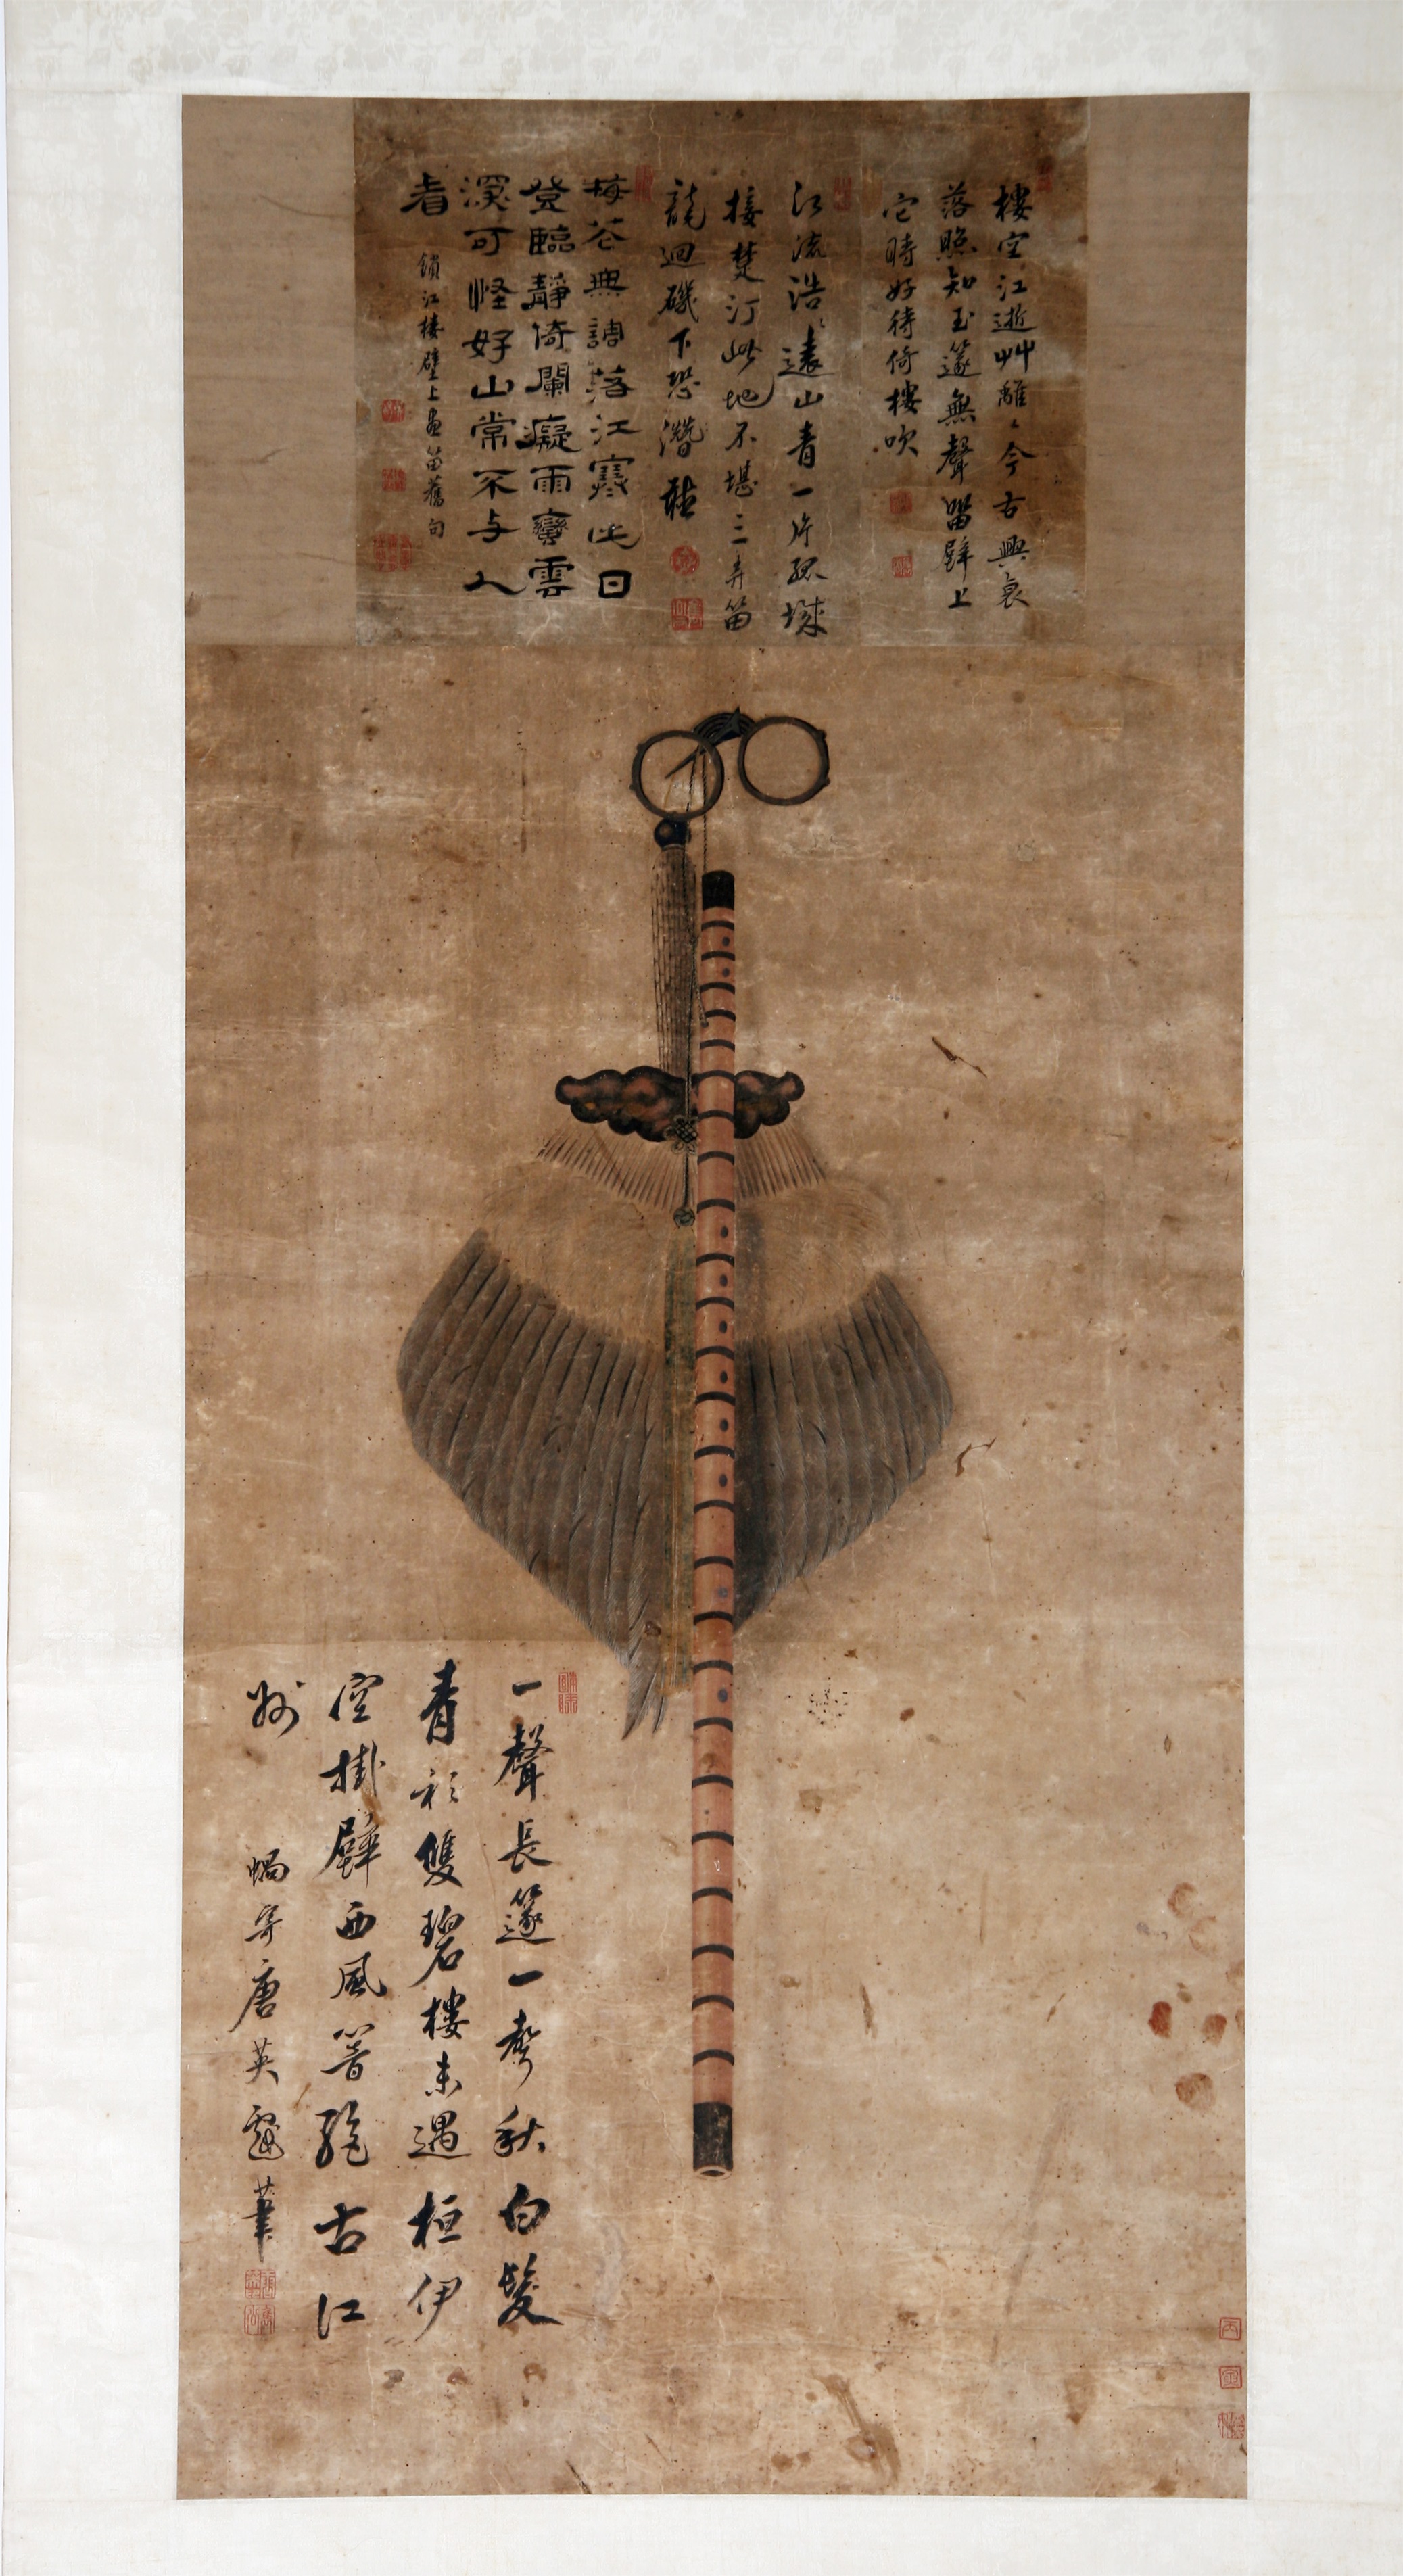 樓空江逝艸離〻今古興哀
落照知玉篴無聲留壁上
它時好待倚樓吹
江流浩〻遠山青一片孤城
接楚汀此地不堪三弄笛
龍迴磯下恐潛聽
梅花無調落江寒此日
登臨靜倚闌癡雨蠻雲
深可怪好山常不与人
看
鎖江樓壁上畫笛舊句
一聲長篴一聲秋白髮
青衫雙碧樓未遇桓伊
空掛壁西風筈𩀱古江
州
蝸寄唐英